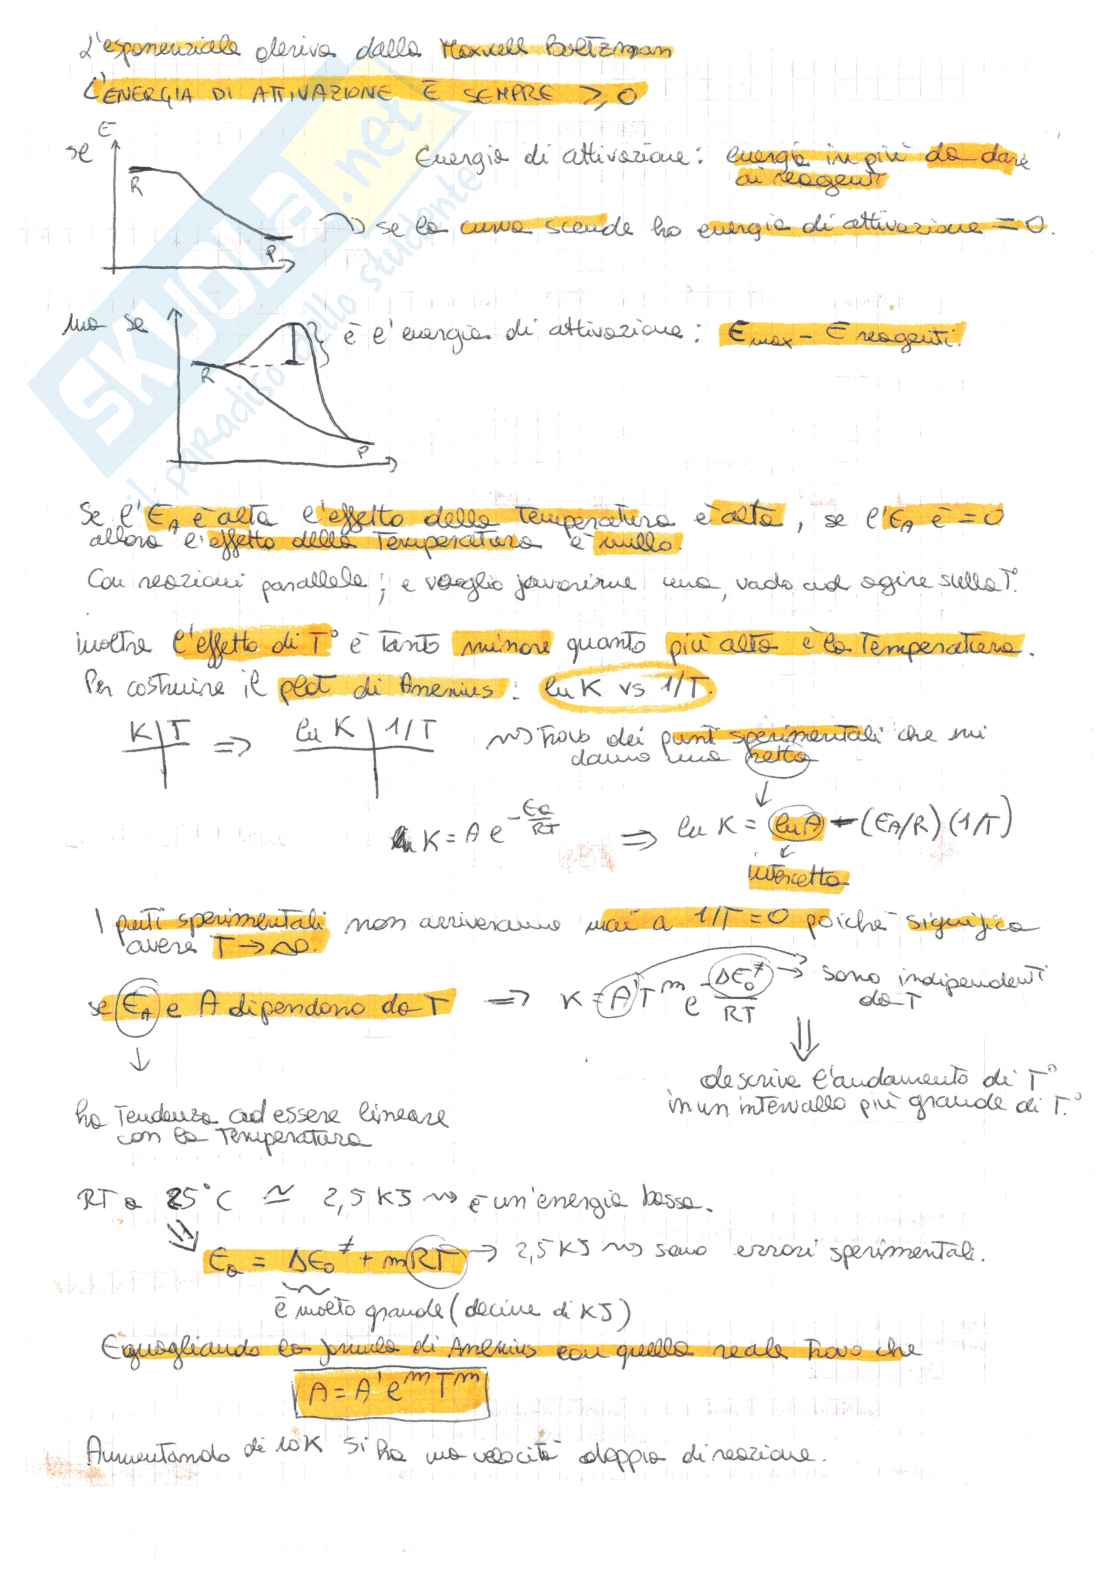 L'esponenziale deriva dalla Maxwell Boltzman
L'ENERGIA DI ATTIVAZIONE È SEMPRE ≥ 0
se
E
R
P
Energia di attivazione: energia in più da dare
ai reagenti
se la curva scende ho energia di attivazione = 0.
ma se
R
P
è l'energia di attivazione: Emax - E reagenti.
Se l'EA è alta l'effetto della Temperatura è alta, se l'EA è = 0
allora l'effetto della Temperatura è nullo.
Con reazioni parallele; e voglio favorirne una, vado ad agire sulla T°
inoltre l'effetto di T° è tanto minore quanto più alta è la Temperatura.
Per costruire il plot di Arrenius: ln K vs 1/T.
K | T ⇒ ln K | 1/T
Trovo dei punti sperimentali che mi
danno una retta
K = A e^-Ea/RT ⇒ ln K = ln A - (EA/R) (1/T)
intercetta
I punti sperimentali non arriveranno mai a 1/T = 0 poichè significa
avere T → ∞.
se EA e A dipendono da T → K = A' T^m e^-ΔE0≠/RT → sono indipendenti
da T
descrive l'andamento di T°
in un intervallo più grande di T.°
ha Tendenza ad essere lineare
con la Temperatura
RT a 25°C ≃ 2,5 KJ è un'energia bassa.
Ea = ΔE0≠ + mRT → 2,5 KJ sono errori sperimentali.
è molto grande (decine di KJ)
Eguagliando la formula di Arrenius con quella reale Trovo che
A = A' e^m T^m
Aumentando di 10K si ha una velocità doppia di reazione.
SKUOLA.net
il paradiso dello studente